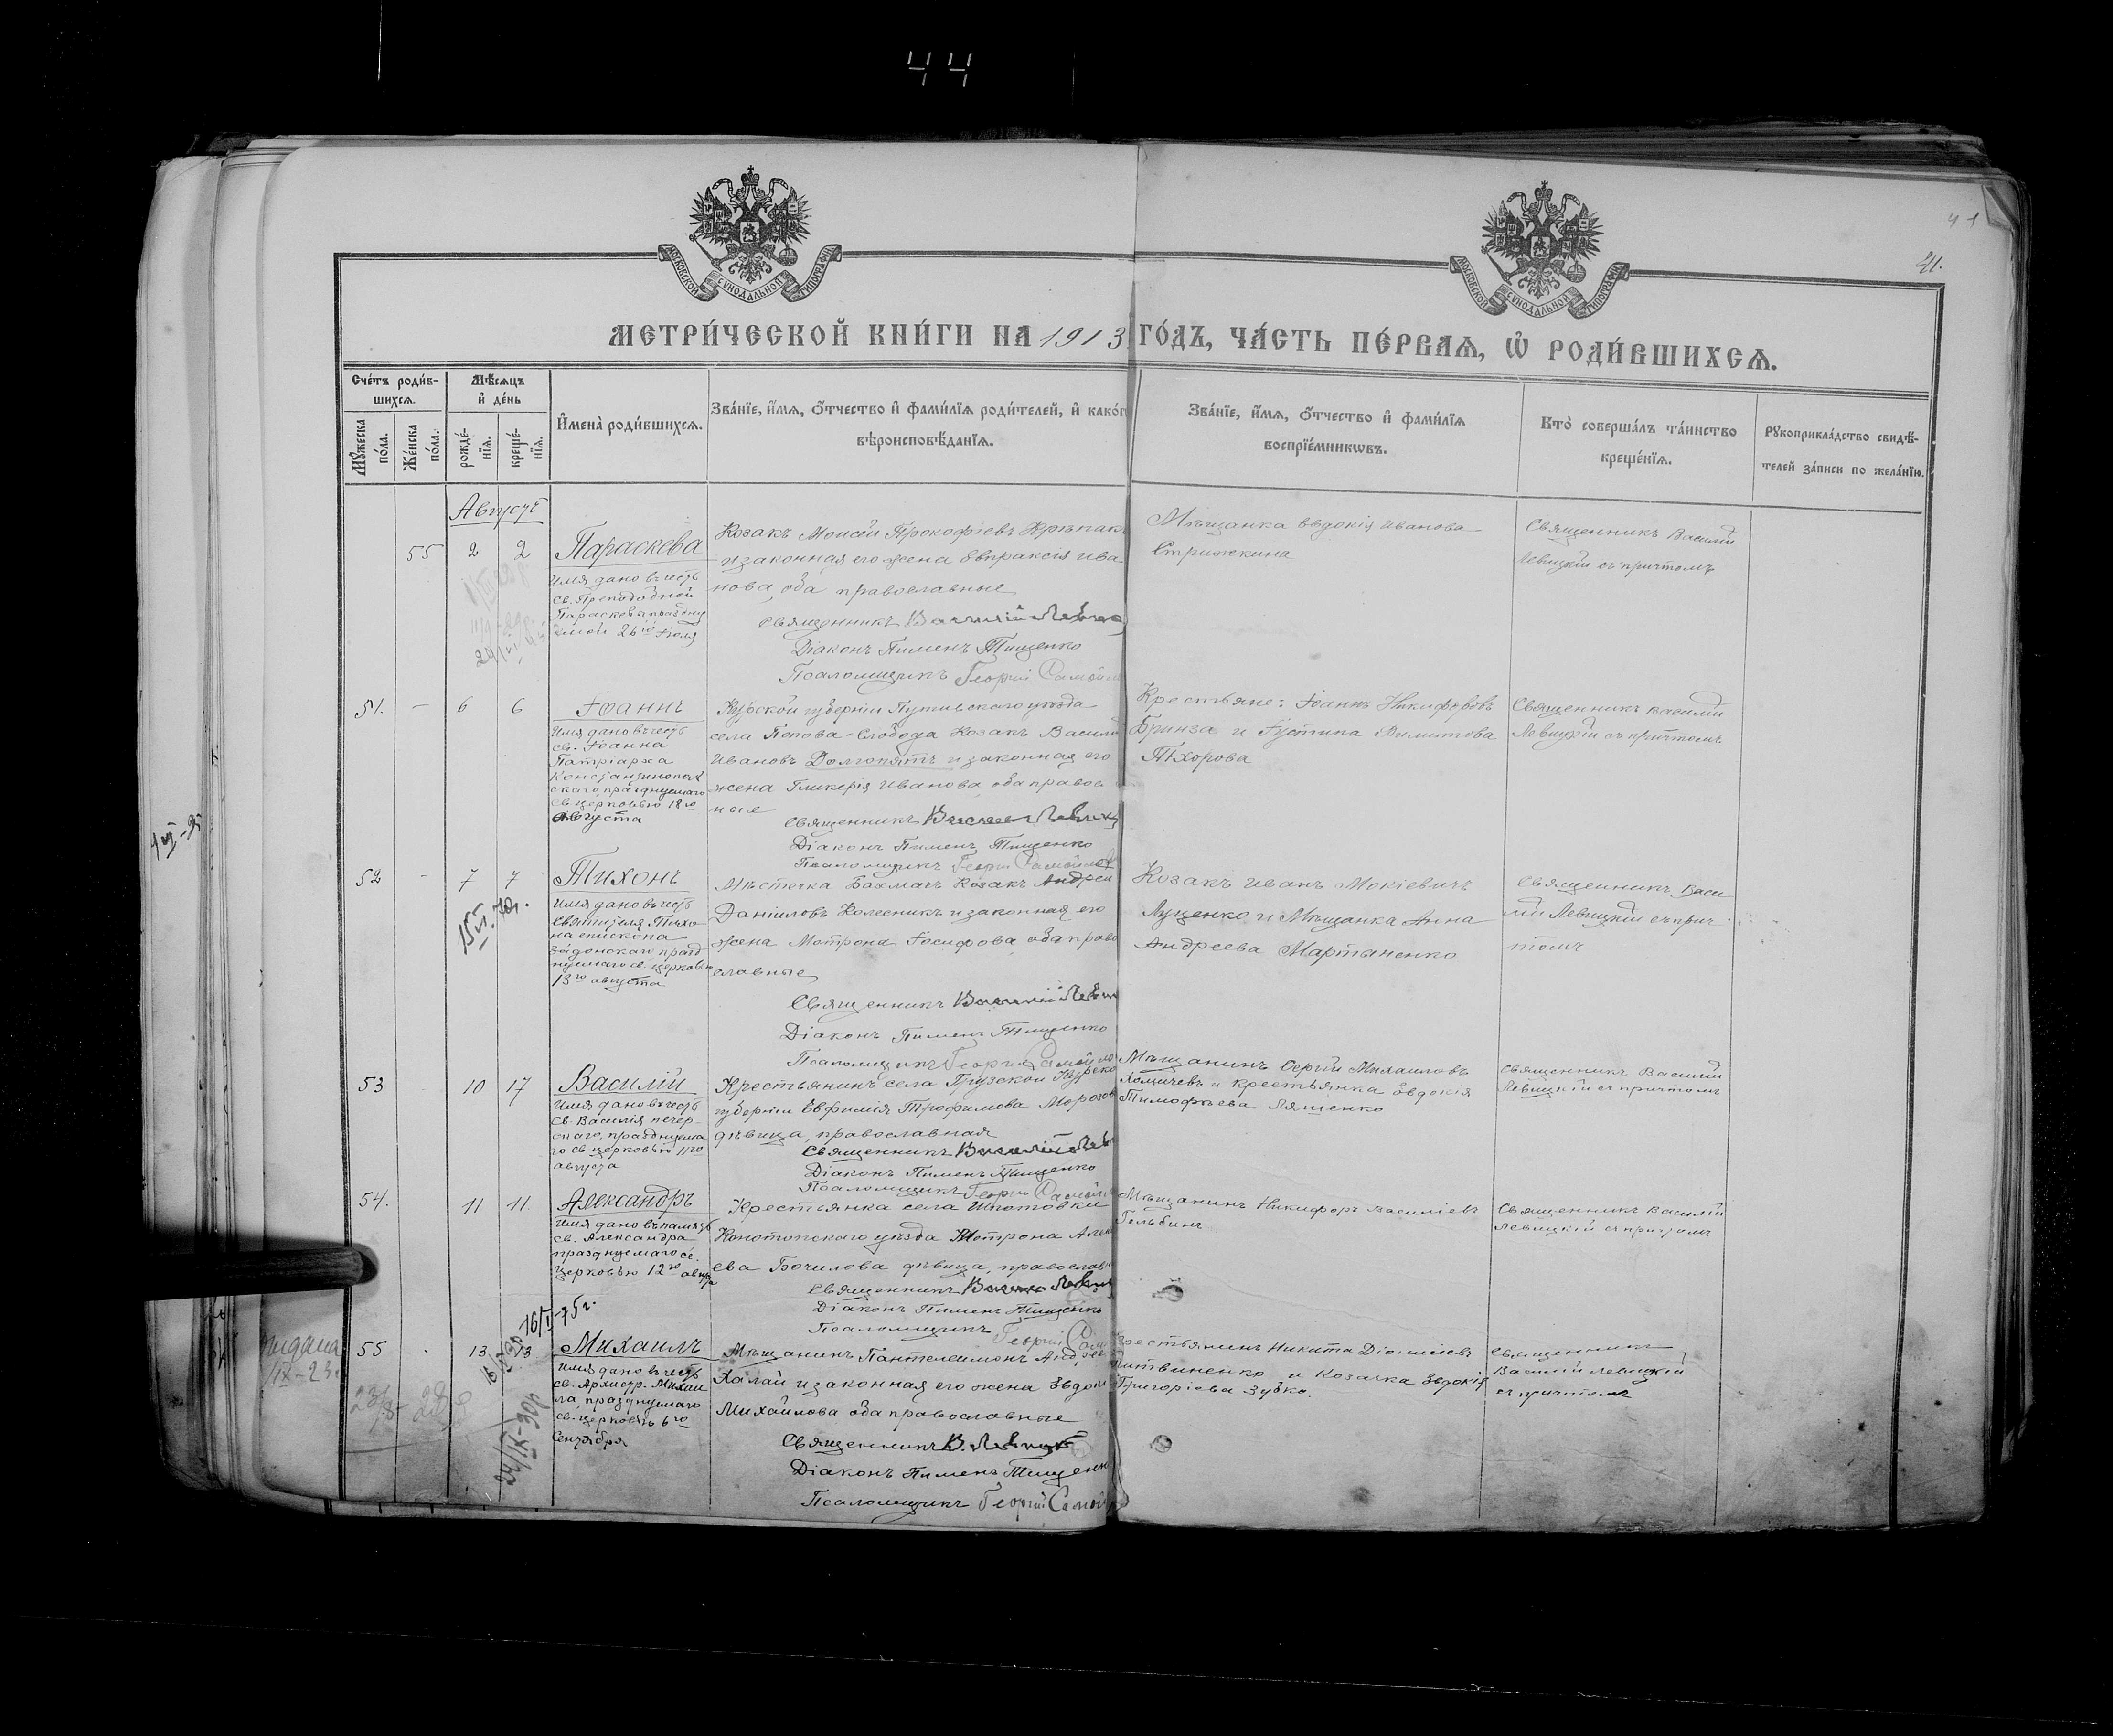 44
41
41.
МОСКОВСКОЙ СѴНОДАЛЬНОЙ ТИПОГРАФІИ
МОСКОВСКОЙ СѴНОДАЛЬНОЙ ТИПОГРАФІИ
МЕТРИ́ЧЕСКОЙ КНИ́ГИ НА 1913 ГО́ДЪ, ЧА́СТЬ ПЕ́РВАѦ, Ѡ҆ РОДИ́ВШИХСѦ.
Сче́тъ роди́в-
шихсѧ.
Мꙋ́жеска по́ла.
Же́нска по́ла.
Мѣ́сѧцъ
и҆ де́нь
рожде́-
нїѧ.
креще́-
нїѧ.
И҆мена̀ роди́вшихсѧ.
Зва́нїе, и҆́мѧ, ѻ҆́тчество и҆ фами́лїѧ роди́телей, и҆ како́гѡ
вѣроисповѣ́данїѧ.
Зва́нїе, и҆́мѧ, ѻ҆́тчество и҆ фами́лїѧ
воспрїе́мникѡвъ.
Кто̀ соверша́лъ та́инство
креще́нїѧ.
Рꙋкоприкла́дство свидѣ́-
телей за́писи по жела́нїю.
Августъ
55 2 2 Параскева
Имя дано въ честь
св. Преподобной
Параскевы праздну
емой 26го Іюля
Козакъ Моисей Прокофіевъ Крѣпак
и законная его жена Евпраксія Ива
нова, оба православные
Священникъ Василій Левиц
Діаконъ Пименъ Тищенко
Псаломщикъ Георгій Самойл
Мѣщанка Евдокія Иванова
Стрижекина
Священникъ Василій
Левицкій съ причтомъ
51. - 6 6 Іоаннъ
Имя дано въ честь
св. Іоанна
Патріарха
Константинополь
скаго, празднуемаго
св. церковью 18го
августа
Курской губерніи Путивльскаго уѣзда
села Попова-Слобода Козакъ Василій
Ивановъ Долгопятъ и законная его
жена Гликерія Иванова, оба правос
ные
Священникъ Василій Левиц
Діаконъ Пименъ Тищенко
Псаломщикъ Георгій Самойлов
Крестьяне: Іоаннъ Никифоровъ
Бринза и Іустина
Тхорова
Священникъ Василій
Левицкій съ причтомъ
52 - 7 7 Тихонъ
Имя дано въ честь
Святителя Тихо
на епископа
Задонскаго, празд
нуемаго св. церковью
13го августа
Мѣстечка Бахмачъ Козакъ Андрей
Даніиловъ Колесникъ и законная его
жена Мотрона Іосифова, оба право
славные
Священникъ Василій Левиц
Діаконъ Пименъ Тищенко
Псаломщикъ Георгій Самойло
Козакъ Иванъ Мокіевичъ
Луценко и Мѣщанка Анна
Андреева Мартыненко
Священникъ Васи
лій Левицкій съ прич
томъ
53 10 17 Василій
Имя дано въ честь
св. Василія печер-
скаго, празднуема
го св. церковью 11го
августа
Крестьянинъ села Пузской Курско
губерніи Евфимія Трофимова Морозов
дѣвица, православная
Священникъ Василій Лев
Діаконъ Пименъ Тищенко
Псаломщикъ Георгій Самойл
Мѣщанинъ Сергій Михаиловъ
Холщевъ и крестьянка Евдокія
Тимофѣева Ляшенко
Священникъ Василій
Левицкій съ причтомъ
54. 11 11. Александръ
Имя дано въ память
св. Александра
празднуемаго св.
церковью 12го авгус
Крестьянка села Шпотовки
Конотопскаго уѣзда Мотрона Алек
ева Бочилова дѣвица, православн
Священникъ Василій Левиц
Діаконъ Пименъ Тищенко
Псаломщикъ Георгій Сам
Мѣщанинъ Никифоръ Василіев
Гольбинъ
Священникъ Василій
Левицкій съ причтомъ
16/I-75г.
55 - 13 13 Михаилъ
Имя дано въ честь
св. Архистр. Михаи
ла, празднуемаго
св. церковью 6го
Сентября
Мѣщанинъ Пантелеимонъ Андрев
Халай и законная его жена Евдокі
Михайлова оба православные
Священникъ В. Левицкій
Діаконъ Пименъ Тищенк
Псаломщикъ Георгій Самой
Крестьянинъ Никита Діонисіевъ
Литвиненко и Козачка Евдокія
Григоріева Зубко.
Священникъ
Василій Левицкій
съ причтомъ
24/IX-30р